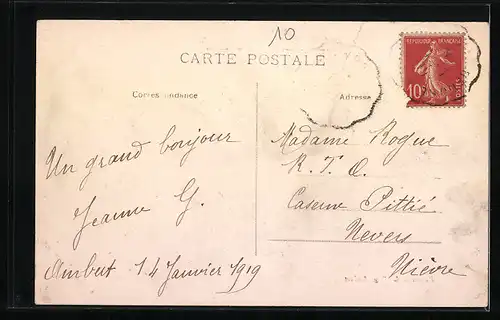 10
CARTE POSTALE
Correspondance
Adresse
REPUBLIQUE FRANÇAISE
10c
POSTES
Un grand bonjour
Jeanne G.
14 Janvier 1919
Madame Rogue
R. T. O.
Caserne Pittié
Nevers
Nièvre